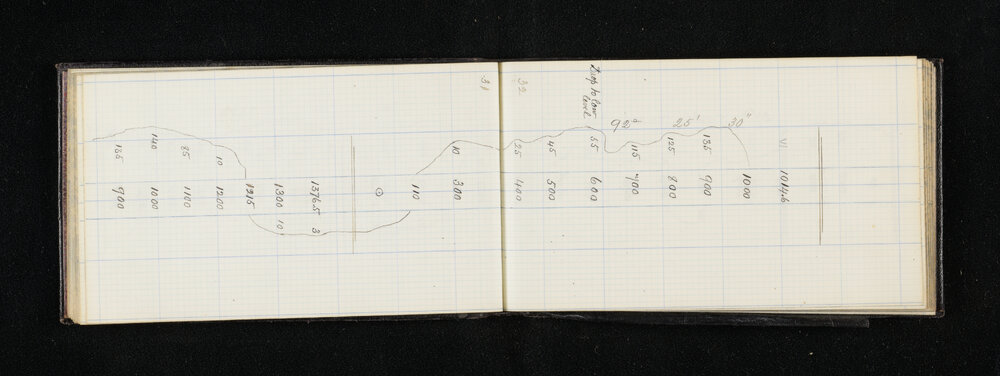 VI 1014.6
1000
135 900
125 800
115 700
92° 25' 30"
Drop to low
level
55 600
45 500
25 400
32
31
10 300
110
1376.5 3
1300 10
1215
10 1200
85 1100
140 1000
135 900